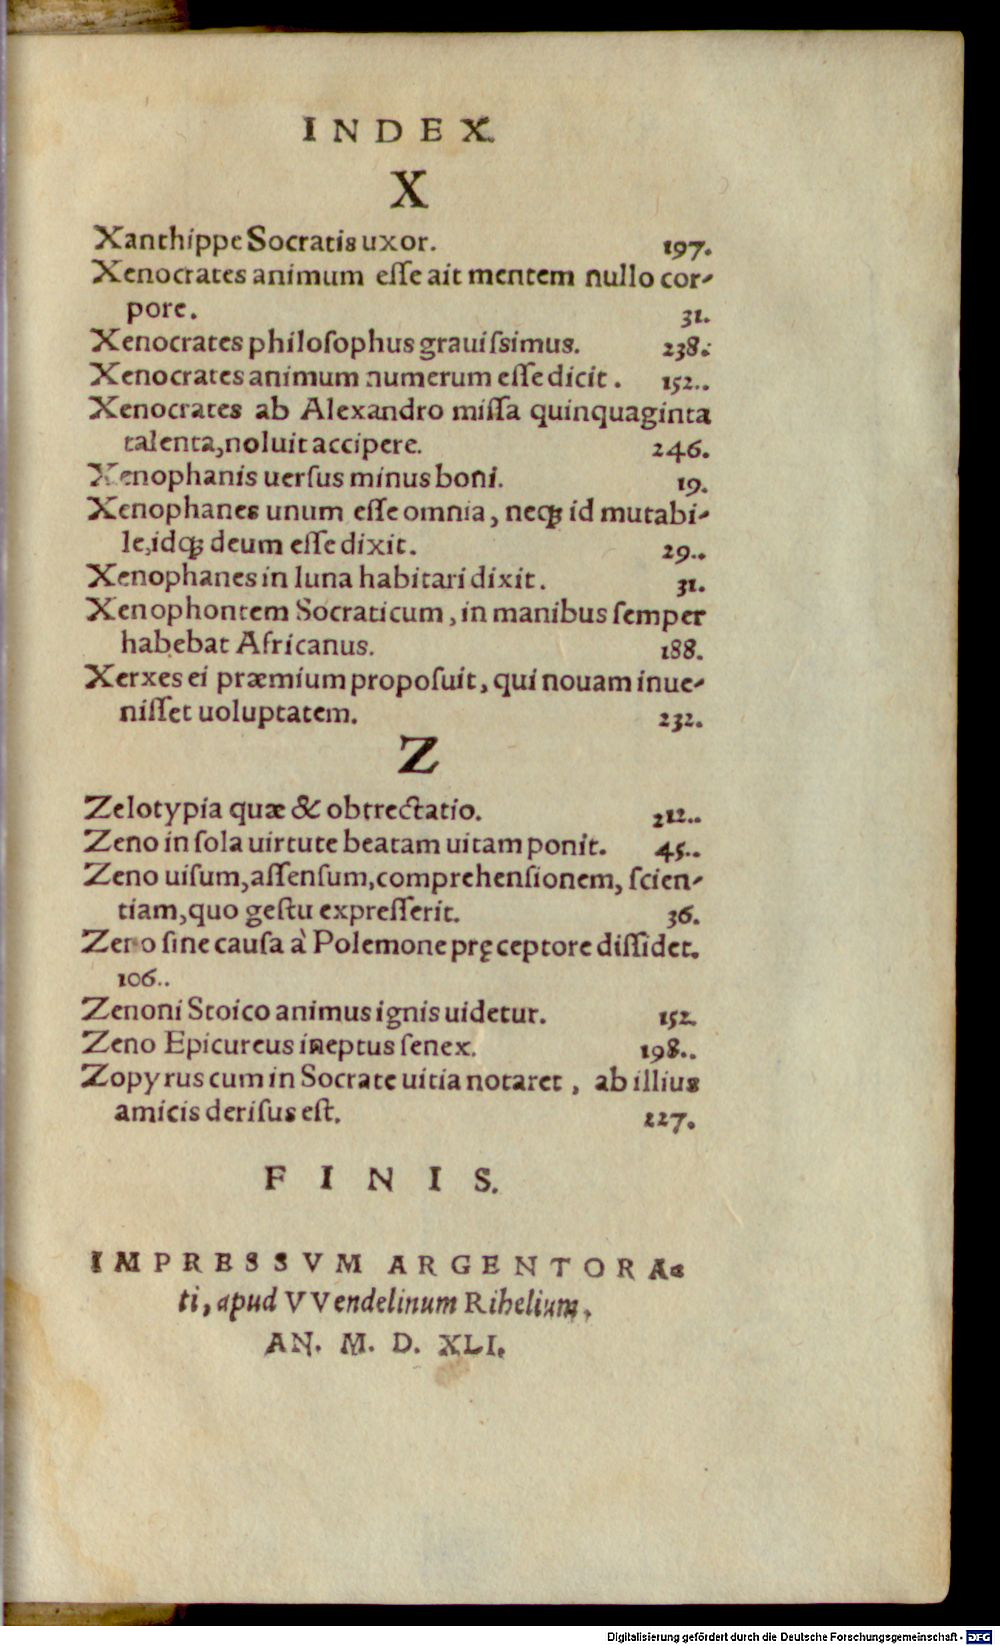 INDEX.
X
Xanthippe Socratis uxor. 197.
Xenocrates animum eſſe ait mentem nullo cor-
pore. 31.
Xenocrates philoſophus grauiſsimus. 238.
Xenocrates animum numerum eſſe dicit. 152..
Xenocrates ab Alexandro miſſa quinquaginta
talenta, noluit accipere. 246.
Xenophanis uerſus minus boni. 19.
Xenophanes unum eſſe omnia, neqꝫ id mutabi-
le, idqꝫ deum eſſe dixit. 29..
Xenophanes in luna habitari dixit. 31.
Xenophontem Socraticum, in manibus ſemper
habebat Africanus. 188.
Xerxes ei præmium propoſuit, qui nouam inue-
niſſet uoluptatem. 232.
Z
Zelotypia quæ & obtrectatio. 212..
Zeno in ſola uirtute beatam uitam ponit. 45..
Zeno uiſum, aſſenſum, comprehenſionem, ſcien-
tiam, quo geſtu expreſſerit. 36.
Zeno ſine cauſa à Polemone pręceptore diſſidet.
106..
Zenoni Stoico animus ignis uidetur. 152.
Zeno Epicureus ineptus ſenex. 198..
Zopyrus cum in Socrate uitia notaret, ab illius
amicis deriſus eſt. 227.
FINIS.
IMPRESSVM ARGENTORA-
ti, apud VVendelinum Rihelium,
AN. M. D. XLI.
Digitalisierung gefördert durch die Deutsche Forschungsgemeinschaft - DFG